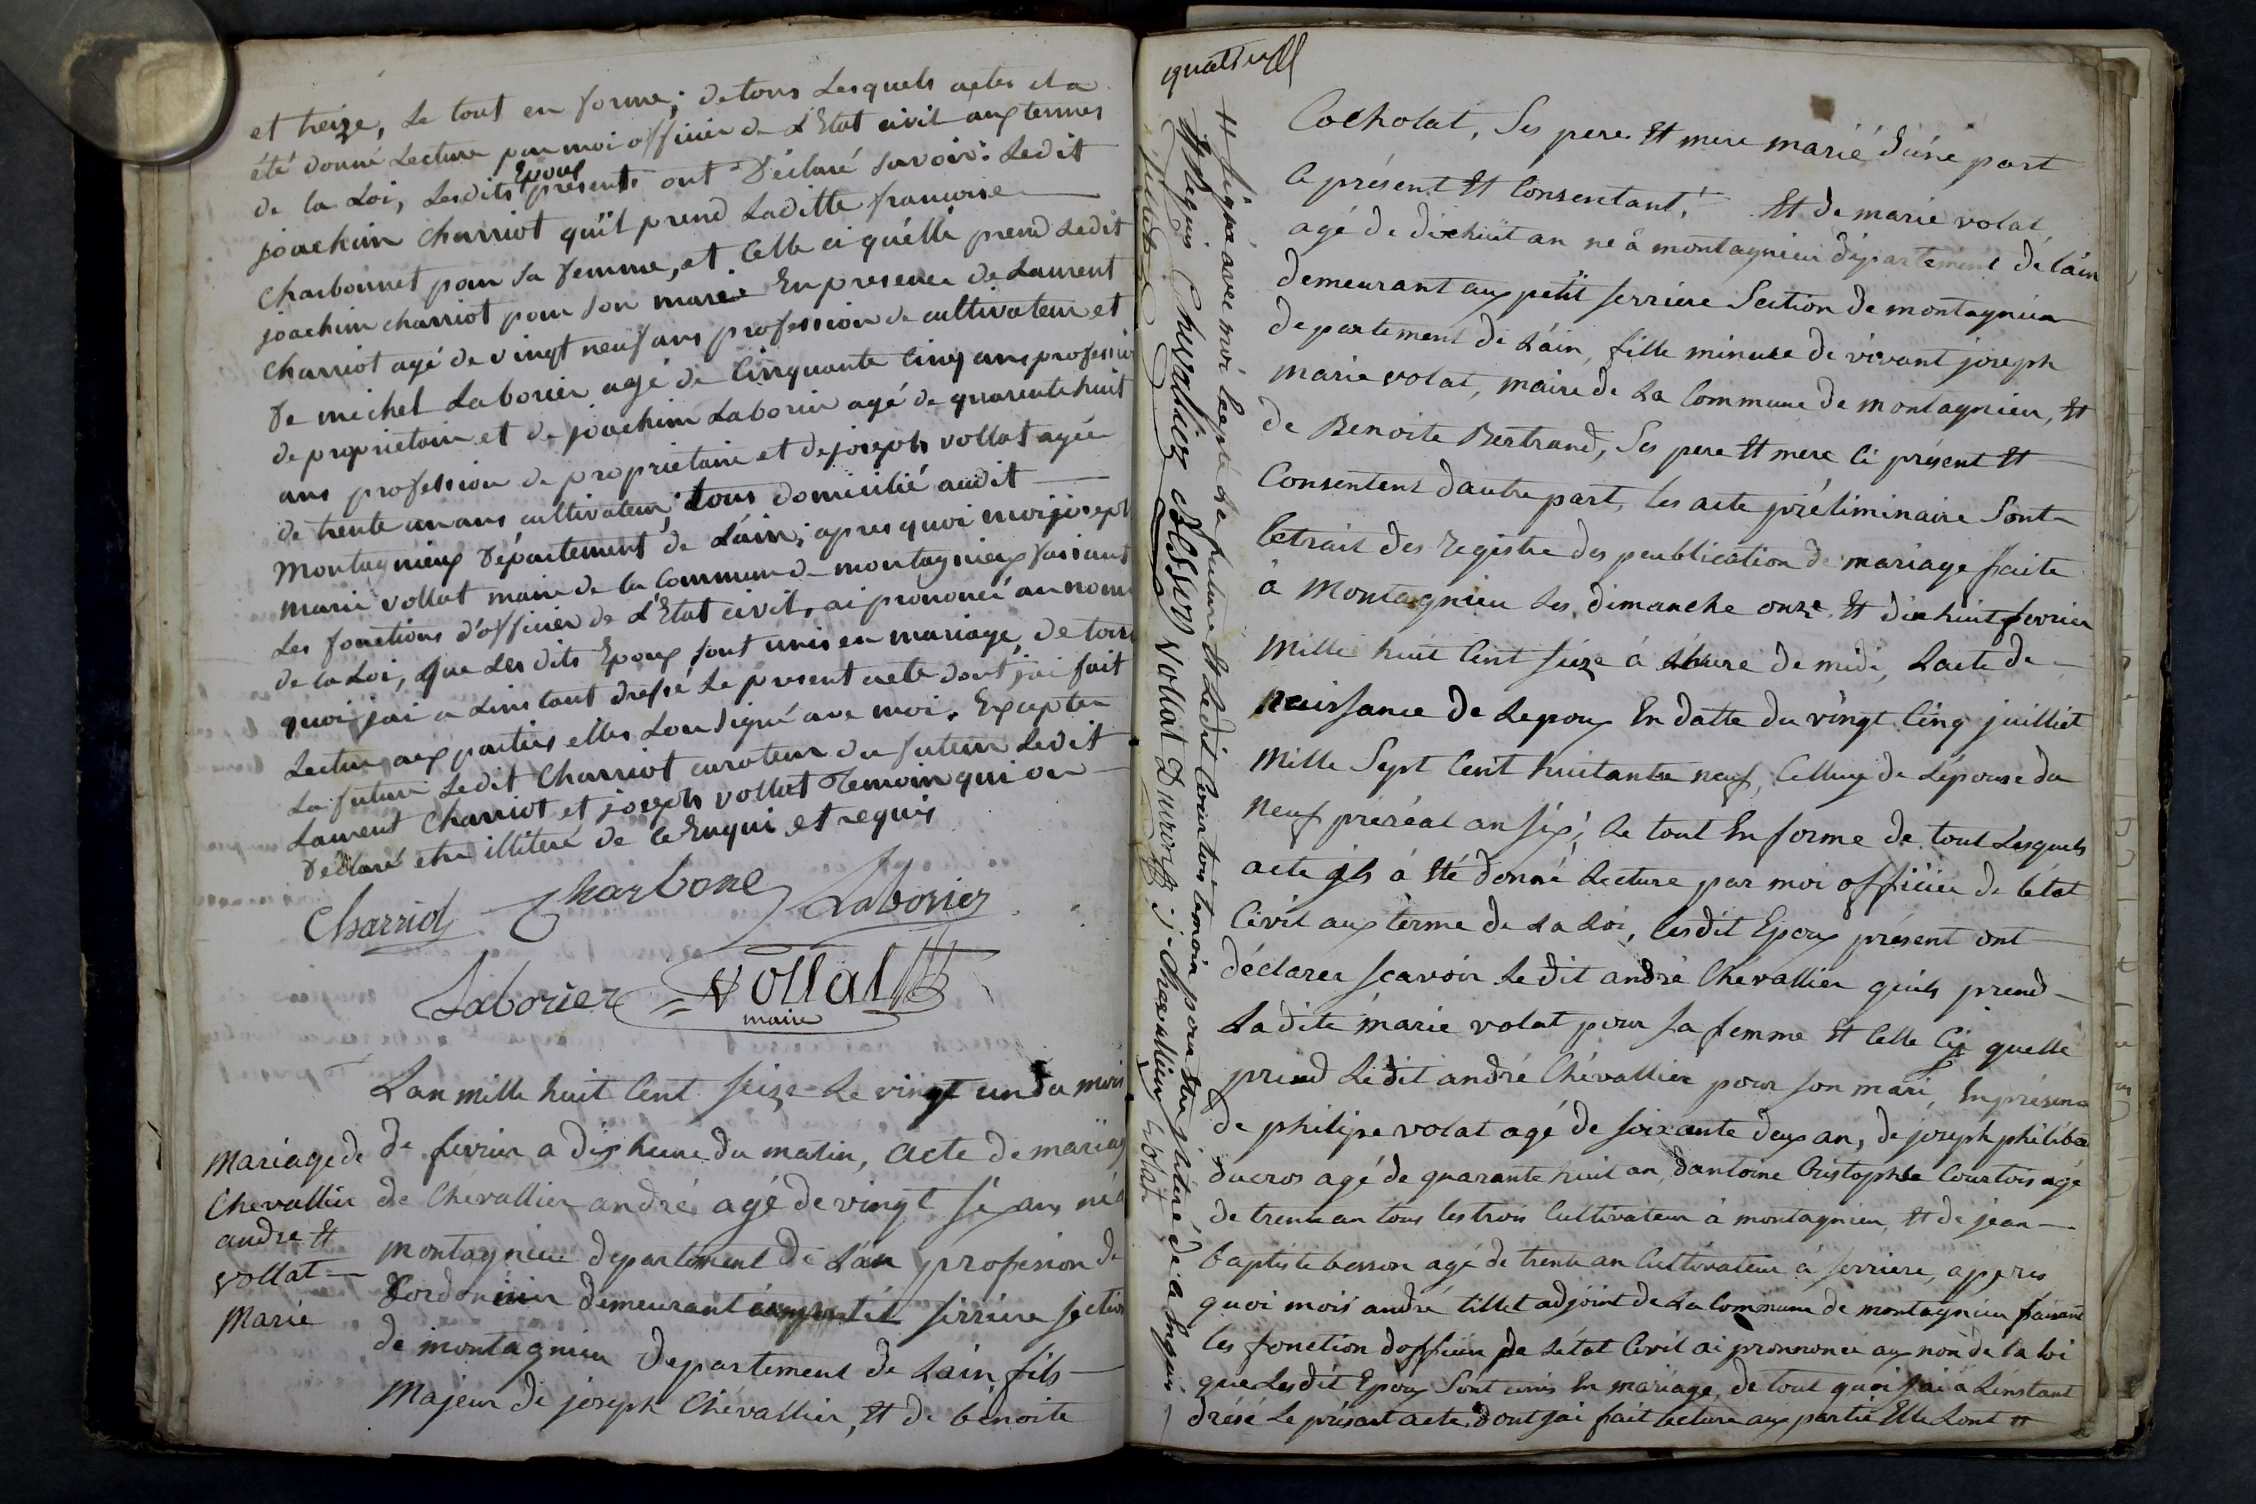 et treize, Le tout en forme; de tous Lesquels actes il a
été donné Lecture par moi officier de L'Etat civil aux termes
de la Loi, Lesdits Epoux présents ont Déclaré savoir: Ledit
joachim charriot qu'il prend Laditte francoise
Charbonnet pour sa femme, et Celle ci qu'elle prend Ledit
joachim charriot pour son marie En presence de Laurent
charriot agé de vingt neuf ans profession de cultivateur et
De michel Laborier agé de Cinquante Cinq ans professio
de proprietaire et de joachim Laborier agé de quarente huit
ans profession de proprietaire et de joseph vollat agée
de trente un ans cultivateur; tous domicilié audit
Montagnieux Département de L'ain; apres quoi moi joseph
marie vollat maire de la Commune de montagnieux faisant
Les fonctions d'officier de L'Etat civil, ai prononcé au nom
de la Loi, que Les dits Epoux sont unis en mariage, de tous
quoi jai a Linstant dressé Le present acte dont jai fait
Lecture aux parties elles Lon signé avec moi. Excepter
La future Ledit Charriot curateur du futur Ledit
Laurent Charriot et joseph vollat Temoin qui on
Déclaré etre illiteré de ce Enqui et requis
Charriot Charbone Laborier
Laborier Vollat
maire
Lan mille huit Cent seize Le vingt un du mois
Mariage de
Chevallier
andre Et
vollat
Marie
de fevrier a dix heure du matin, acte de mariag
de Chévallier andré agé de vingt six an, né a
montagnieu departement de L'ain profession de
Cordonnier demeurant aux petit serriere section
de montagnieu Departement de Lain fils
Majeur de joseph Chévallier, Et de bénoite
quatre
Cocholat, Ses pere Et mere marié d'une part
Ci présent Et Consentant. Et de marie volat
agé de dix huit an né à montagnieu département de lain
demeurant aux petit serriere Section de montagnieu
departement de L'ain, fille mineure de vivant joseph
marie volat, maire de La Commune de montagnieu, Et
de Benoite Bertrand, Ses pere Et mere Ci présent Et
Consentent d'autre part, les acte préliminaire Sont
Cetrait des registre des peublication de mariage faite
à Montagnieu Les dimanche onze Et dix huit fevrier
Mille huit Cent seize à L'hure de midi, Lacte de
naissance de Lepoux En datte du vingt Cinq juilliet
Mille Sept Cent huitante neuf, Celluy de L'épouse du
Neuf préréal an six, Le tout En forme de tout Lesquels
acte jls à Eté donné Lecture par moi officier de l'état
Civil aux terme de La Loi, lesdit Epoux présent ont
déclarer scavoir Le dit andré Chévallier quils prend
La dite marie volat pour sa femme Et Celle Cy quelle
prend Ledit andré Chévallier pour son mari, En présence
de philipe volat agé de soixante deux an, de joseph philibe
ducros agé de quarante huit an, dantoine Cristophle Courtois agé
de trente an tous les trois Cultivateur à montagnieu, Et de jean
baptiste besson agé de trente an Cultivateur à serriere, aperès
quoi mois andré tillet adjoint de La Commune de montagnieu faisant
les fonction dofficier de Létat Civil ai pronnoncé aux non de la loi
que Lesdit Epoux Sont unis En mariage, de tout quoi jai à Linstant
drésé Le présant acte, dont jai fait lecture aux partie Elle Lont H
H signé avec moi Cexpté La future Et Ledit Courtois temoin pour etre jliteré de ce Enquis
Et Requis Chevallier BESSON vollat Ducros j. chevallier volat
tillet